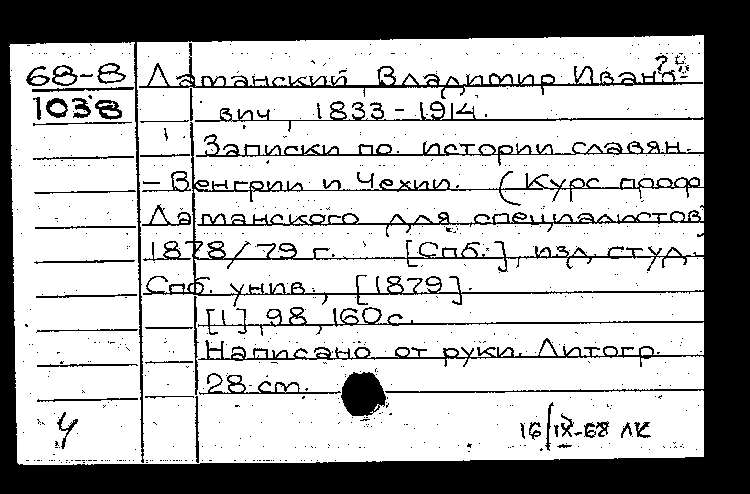 68-8
1038
Ламанский, Владимир Ивано-
вич, 1833-1914.
Записки по истории славян.
- Венгрии и Чехии. (Курс проф
Ламанского для специалистов
1878/79 г. [Спб.], изд. студ.
Спб. унив., [1879].
[1], 98, 160 с.
Написано от руки. Литогр.
28 см.
16/IX-68 ЛК